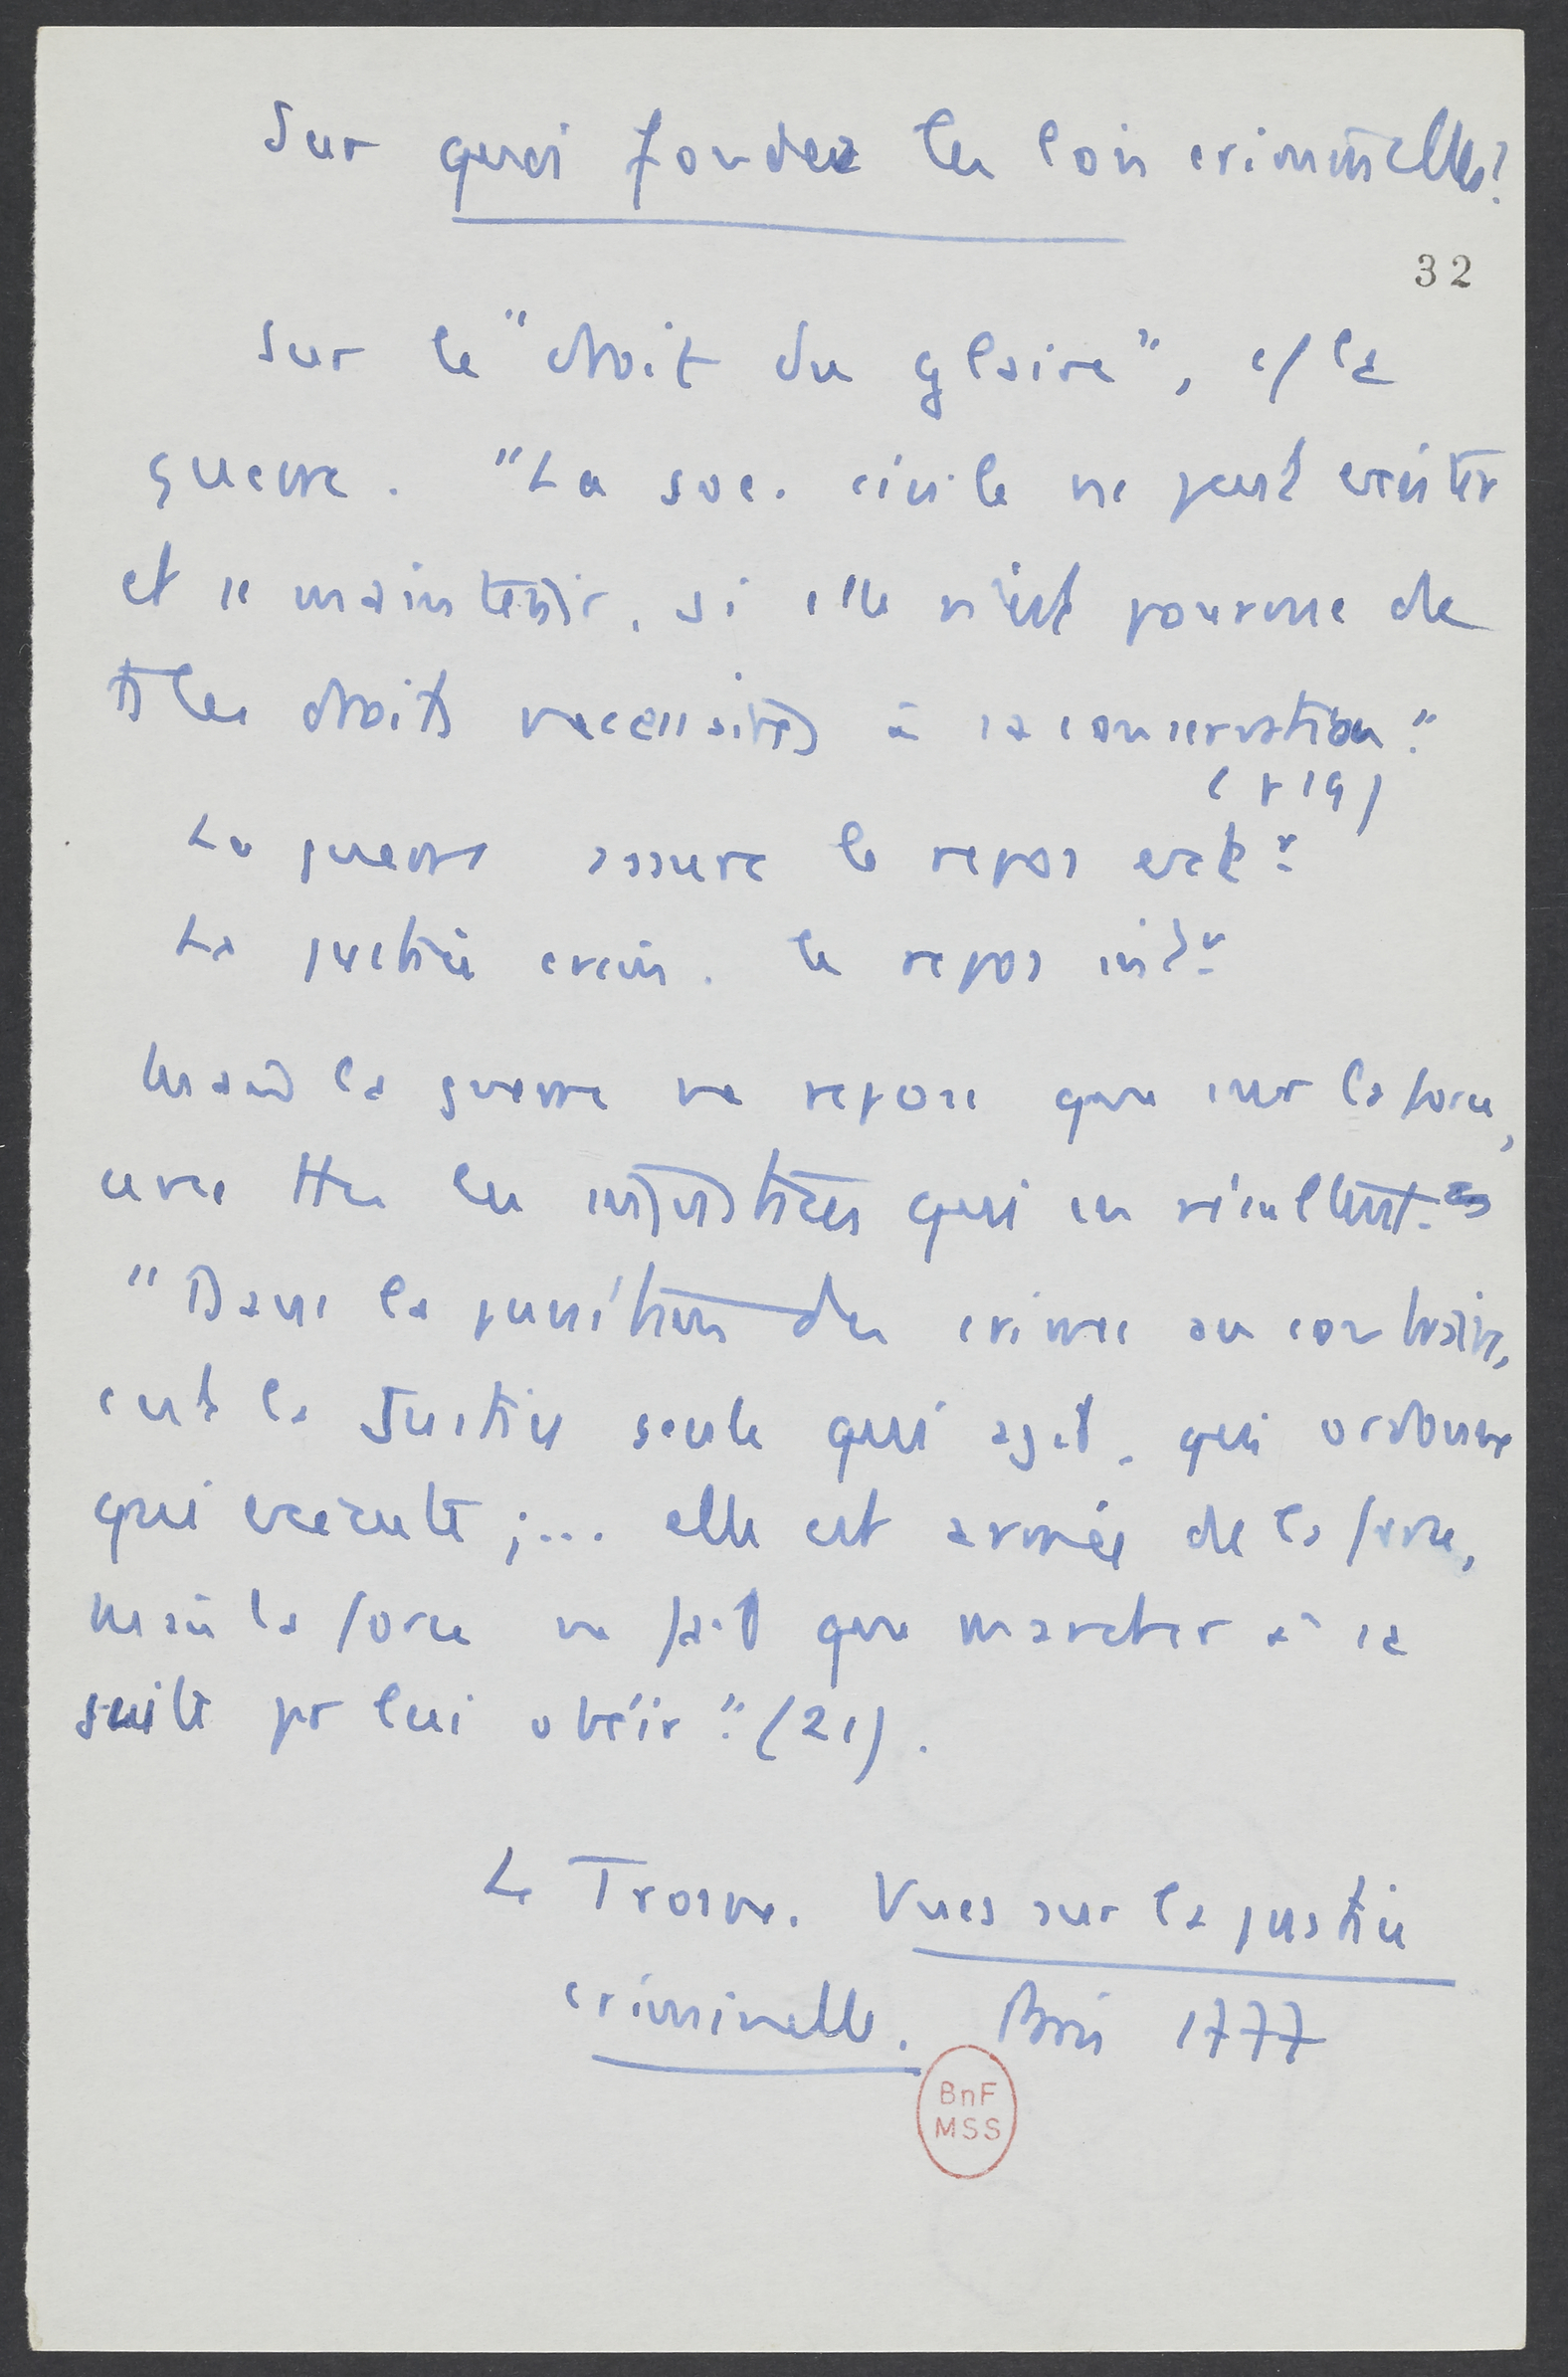 Sur quoi fonder les lois criminelles?
32
Sur le "droit du glaive", c/ la
guerre. "La soc. civile ne peut exister
et se maintenir, si elle n'est pourvue de
ts les droits necessaires à sa conservation."
(p 19)
La guerre assure le repos extr
La justice crim. le repos intr
Mais la guerre ne repose que sur la force,
avec ttes les injustices qui en résultent.
"Dans la punition des crimes au contraire,
c'est la Justice seule qui agit, qui ordonne
qui execute ;... elle est armée de la force,
mais la force ne fait que marcher à sa
suite pr lui obéir." (21).
Le Trosne. Vues sur la justice
criminelle. Paris 1777
BnF
MSS